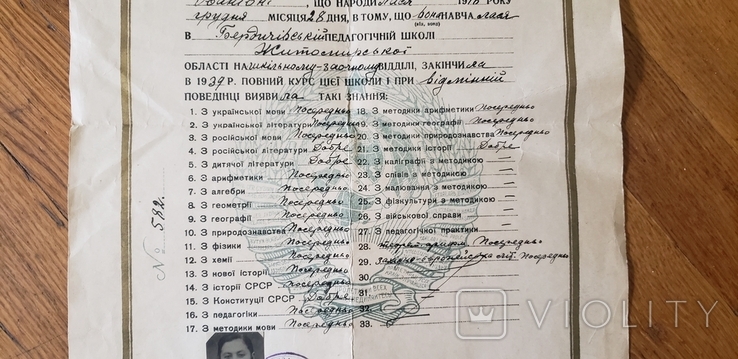 , ЩО НАРОДИлася 1918 РОКУ
грудня МІСЯЦЯ 28 ДНЯ, В ТОМУ, ЩО вона НАВЧАлася
(він, вона)
В Бердичівській ПЕДАГОГІЧНІЙ ШКОЛІ
Житомирської
ОБЛАСТІ НА шкільному-заочному ВІДДІЛІ, ЗАКІНЧИла
В 1939 Р. ПОВНИЙ КУРС ЦІЄЇ ШКОЛИ І ПРИ відмінній
ПОВЕДІНЦІ ВИЯВИла ТАКІ ЗНАННЯ:
1. З української мови Посередньо
2. З української літератури Посередньо
3. З російської мови Посередньо
4. З російської літератури Добре
5. З дитячої літератури Добре
6. З аритметики Посередньо
7. З алгебри Посередньо
8. З геометрії Посередньо
9. З географії Посередньо
10. З природознавства Посередньо
11. З фізики Посередньо
12. З хемії Посередньо
13. З нової історії Посередньо
14. З історії СРСР Посередньо
15. З Конституції СРСР Добре
16. З педагогіки Посередньо
17. З методики мови Посередньо
18. З методики аритметики Посередньо
19. З методики географії Посередньо
20. З методики природознавства Посередньо
21. З методики історії Добре
22. З каліграфії з методикою —
23. З співів з методикою —
24. З малювання з методикою —
25. З фізкультури з методикою —
26. З військової справи —
27. З педагогічної практики —
28. теорет. арифм. Посередньо
29. Західно-європейська літ. Посередньо
30. —
31. —
32. —
33. —
№ 582.
VIOLITY